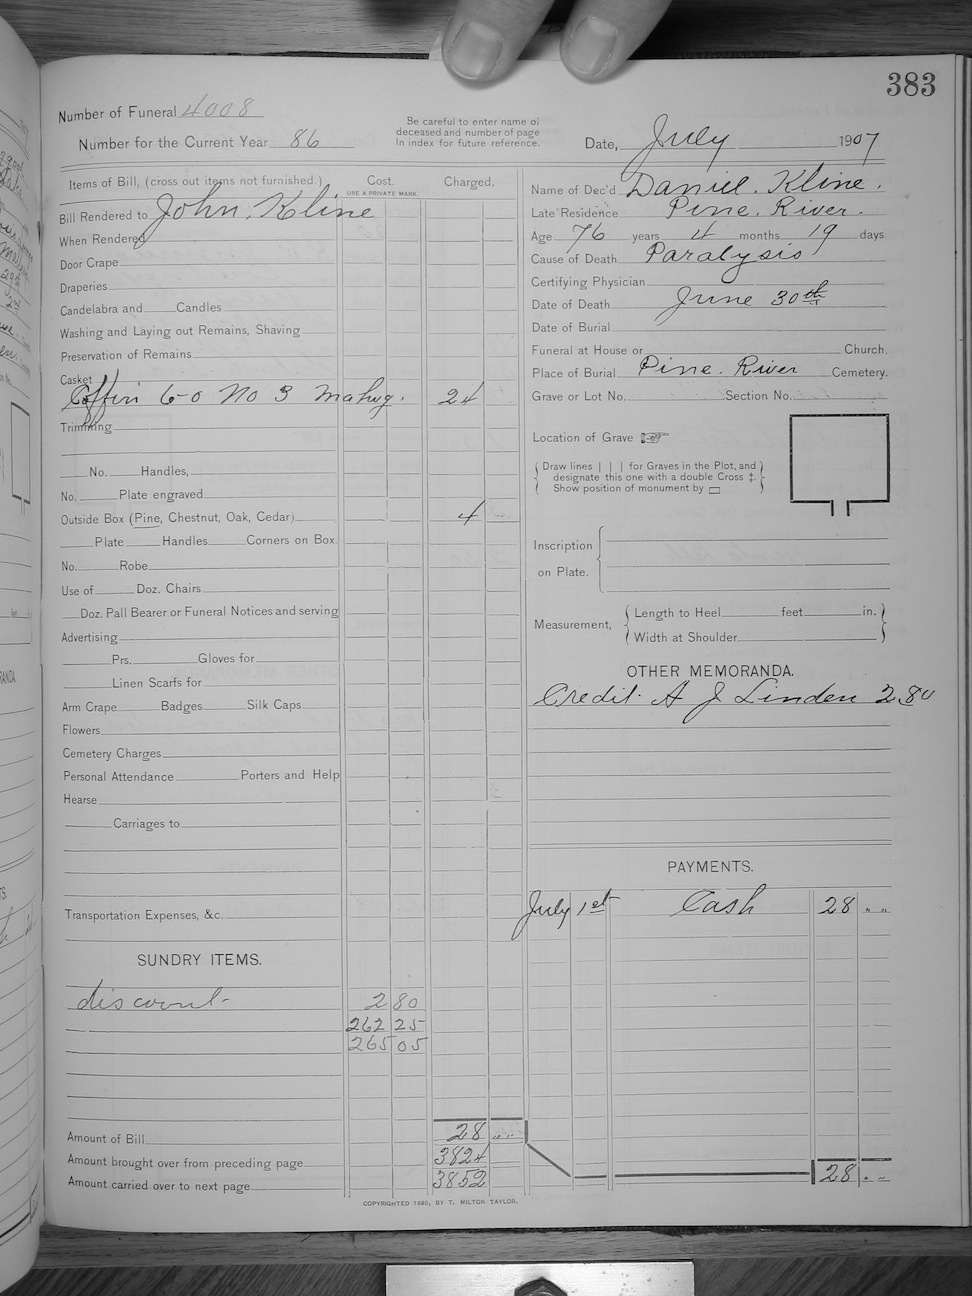 383
Number of Funeral 4008
Number for the Current Year 86
Be careful to enter name of
deceased and number of page
In index for future reference.
Date, July 1907
Items of Bill, (cross out items not furnished.) Cost. Charged.
USE A PRIVATE MARK.
Bill Rendered to John. Kline
When Rendered
Door Crape
Draperies
Candelabra and Candles
Washing and Laying out Remains, Shaving
Preservation of Remains
Casket
Coffin 6-0 No 3 Mahog. 24
Trimming
No. Handles,
No. Plate engraved
Outside Box (Pine, Chestnut, Oak, Cedar) 4
Plate Handles Corners on Box.
No. Robe
Use of Doz. Chairs
Doz. Pall Bearer or Funeral Notices and serving
Advertising
Prs. Gloves for
Linen Scarfs for
Arm Crape Badges Silk Caps
Flowers
Cemetery Charges
Personal Attendance Porters and Help
Hearse
Carriages to
Transportation Expenses, &c.
SUNDRY ITEMS.
discount 2 80
262 25
265 05
Amount of Bill 28 " "
Amount brought over from preceding page 3824
Amount carried over to next page 3852
Name of Dec'd Daniel. Kline.
Late Residence Pine. River.
Age 76 years 4 months 19 days
Cause of Death Paralysis
Certifying Physician
Date of Death June 30th
Date of Burial
Funeral at House or Church.
Place of Burial Pine. River Cemetery.
Grave or Lot No. Section No.
Location of Grave ☞
Draw lines | | | for Graves in the Plot, and
designate this one with a double Cross ‡.
Show position of monument by ▭
Inscription
on Plate.
Measurement, Length to Heel feet in.
Width at Shoulder
OTHER MEMORANDA.
Credit. A J Linden 2.80
PAYMENTS.
July 1st Cash 28 " "
28 " "
COPYRIGHTED 1890, BY T. MILTON TAYLOR.